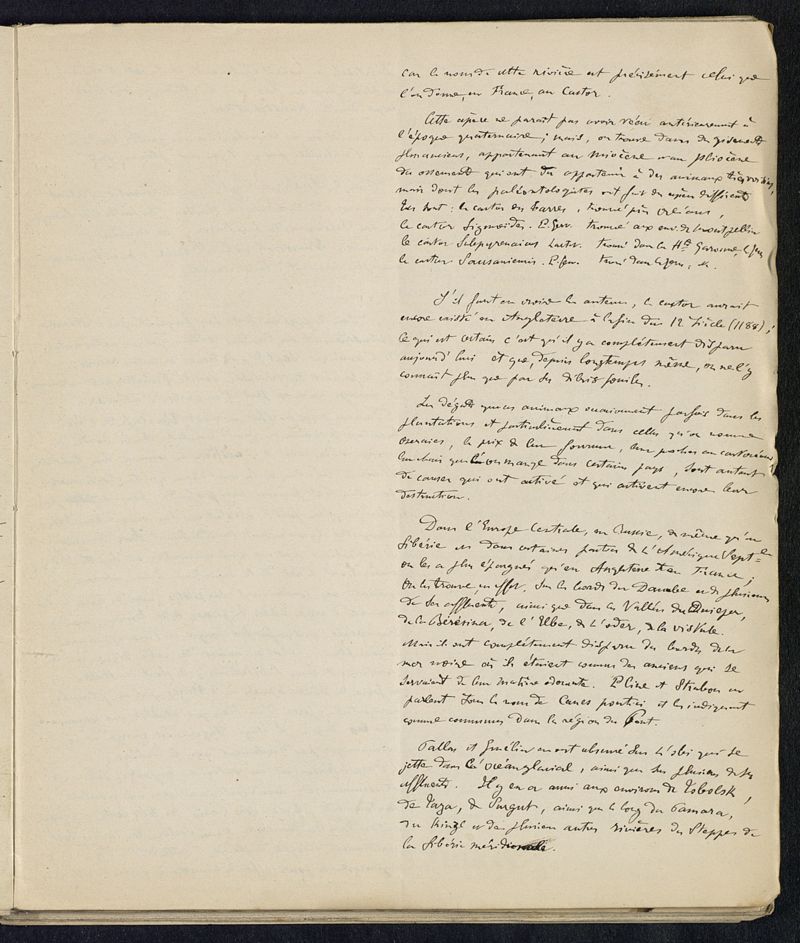 car le nom de cette rivière est précisément celui que
l'on donne, en France, au Castor.
Cette espèce ne parait pas avoir vécu antérieurement à
l'époque quaternaire ; mais, on trouve dans des gisements
plus anciens, appartenant au miocène ou au pliocène
des ossements qui ont dû appartenir à des animaux très voisins,
mais dont les paléontologistes ont fait des espèces différentes
Tels sont : le castor des barres, trouvé près Orléans,
le castor Sigmoïdes. P. Gerv. trouvé aux env. de Montpellier
le castor Subpyrenaicus Lartet. trouvé dans la Hte Garonne, le Gers
le castor Sansaniensis. P. Gerv. trouvé dans le Gers, &.
S'il faut en croire les auteurs, le castor aurait
encore existé en Angleterre à la fin du 12 Siècle (1188) ;
ce qui est certain c'est qu'il y a complètement disparu
aujourd'hui et que, depuis longtemps même, on ne l'y
connait plus que par ses débris fossiles.
Les dégâts que ces animaux occasionnent parfois dans les
plantations et particulièrement dans celles qu'on nomme
oseraies, le prix de leur fourrure, leur poches au castoréum,
leur chair que l'on mange dans certains pays, sont autant
de causes qui ont activé et qui activent encore leur
destruction.
Dans l'Europe Centrale, en Russie, de même qu'en
Sibérie et dans certaines parties de l'Amérique Septle
on les a plus épargnés qu'en Angleterre et en France ;
On les trouve en effet, sur les bords du Danube et de plusieurs
de ses affluents, ainsi que dans les Vallées du Dnieper,
de la Bérésina, de l'Elbe, de l'Oder, de la Vistule.
Mais ils ont complètement disparu des bords de la
mer noire où ils étaient connus des anciens qui se
servaient de leur matière odorante. Pline et Strabon en
parlent sous le nom de Canes pontici et les indiquent
comme communs dans la région du Pont.
Pallas et Gmélin en ont observé sur l'Obi qui se
jette dans l'océan glacial, ainsi que sur plusieurs de ses
affluents. Il y en a aussi aux environs de Tobolsk,
de Taza, de Surgut, ainsi que le long du
du et de plusieurs autres rivières des Steppes de
la Sibérie méridionale.